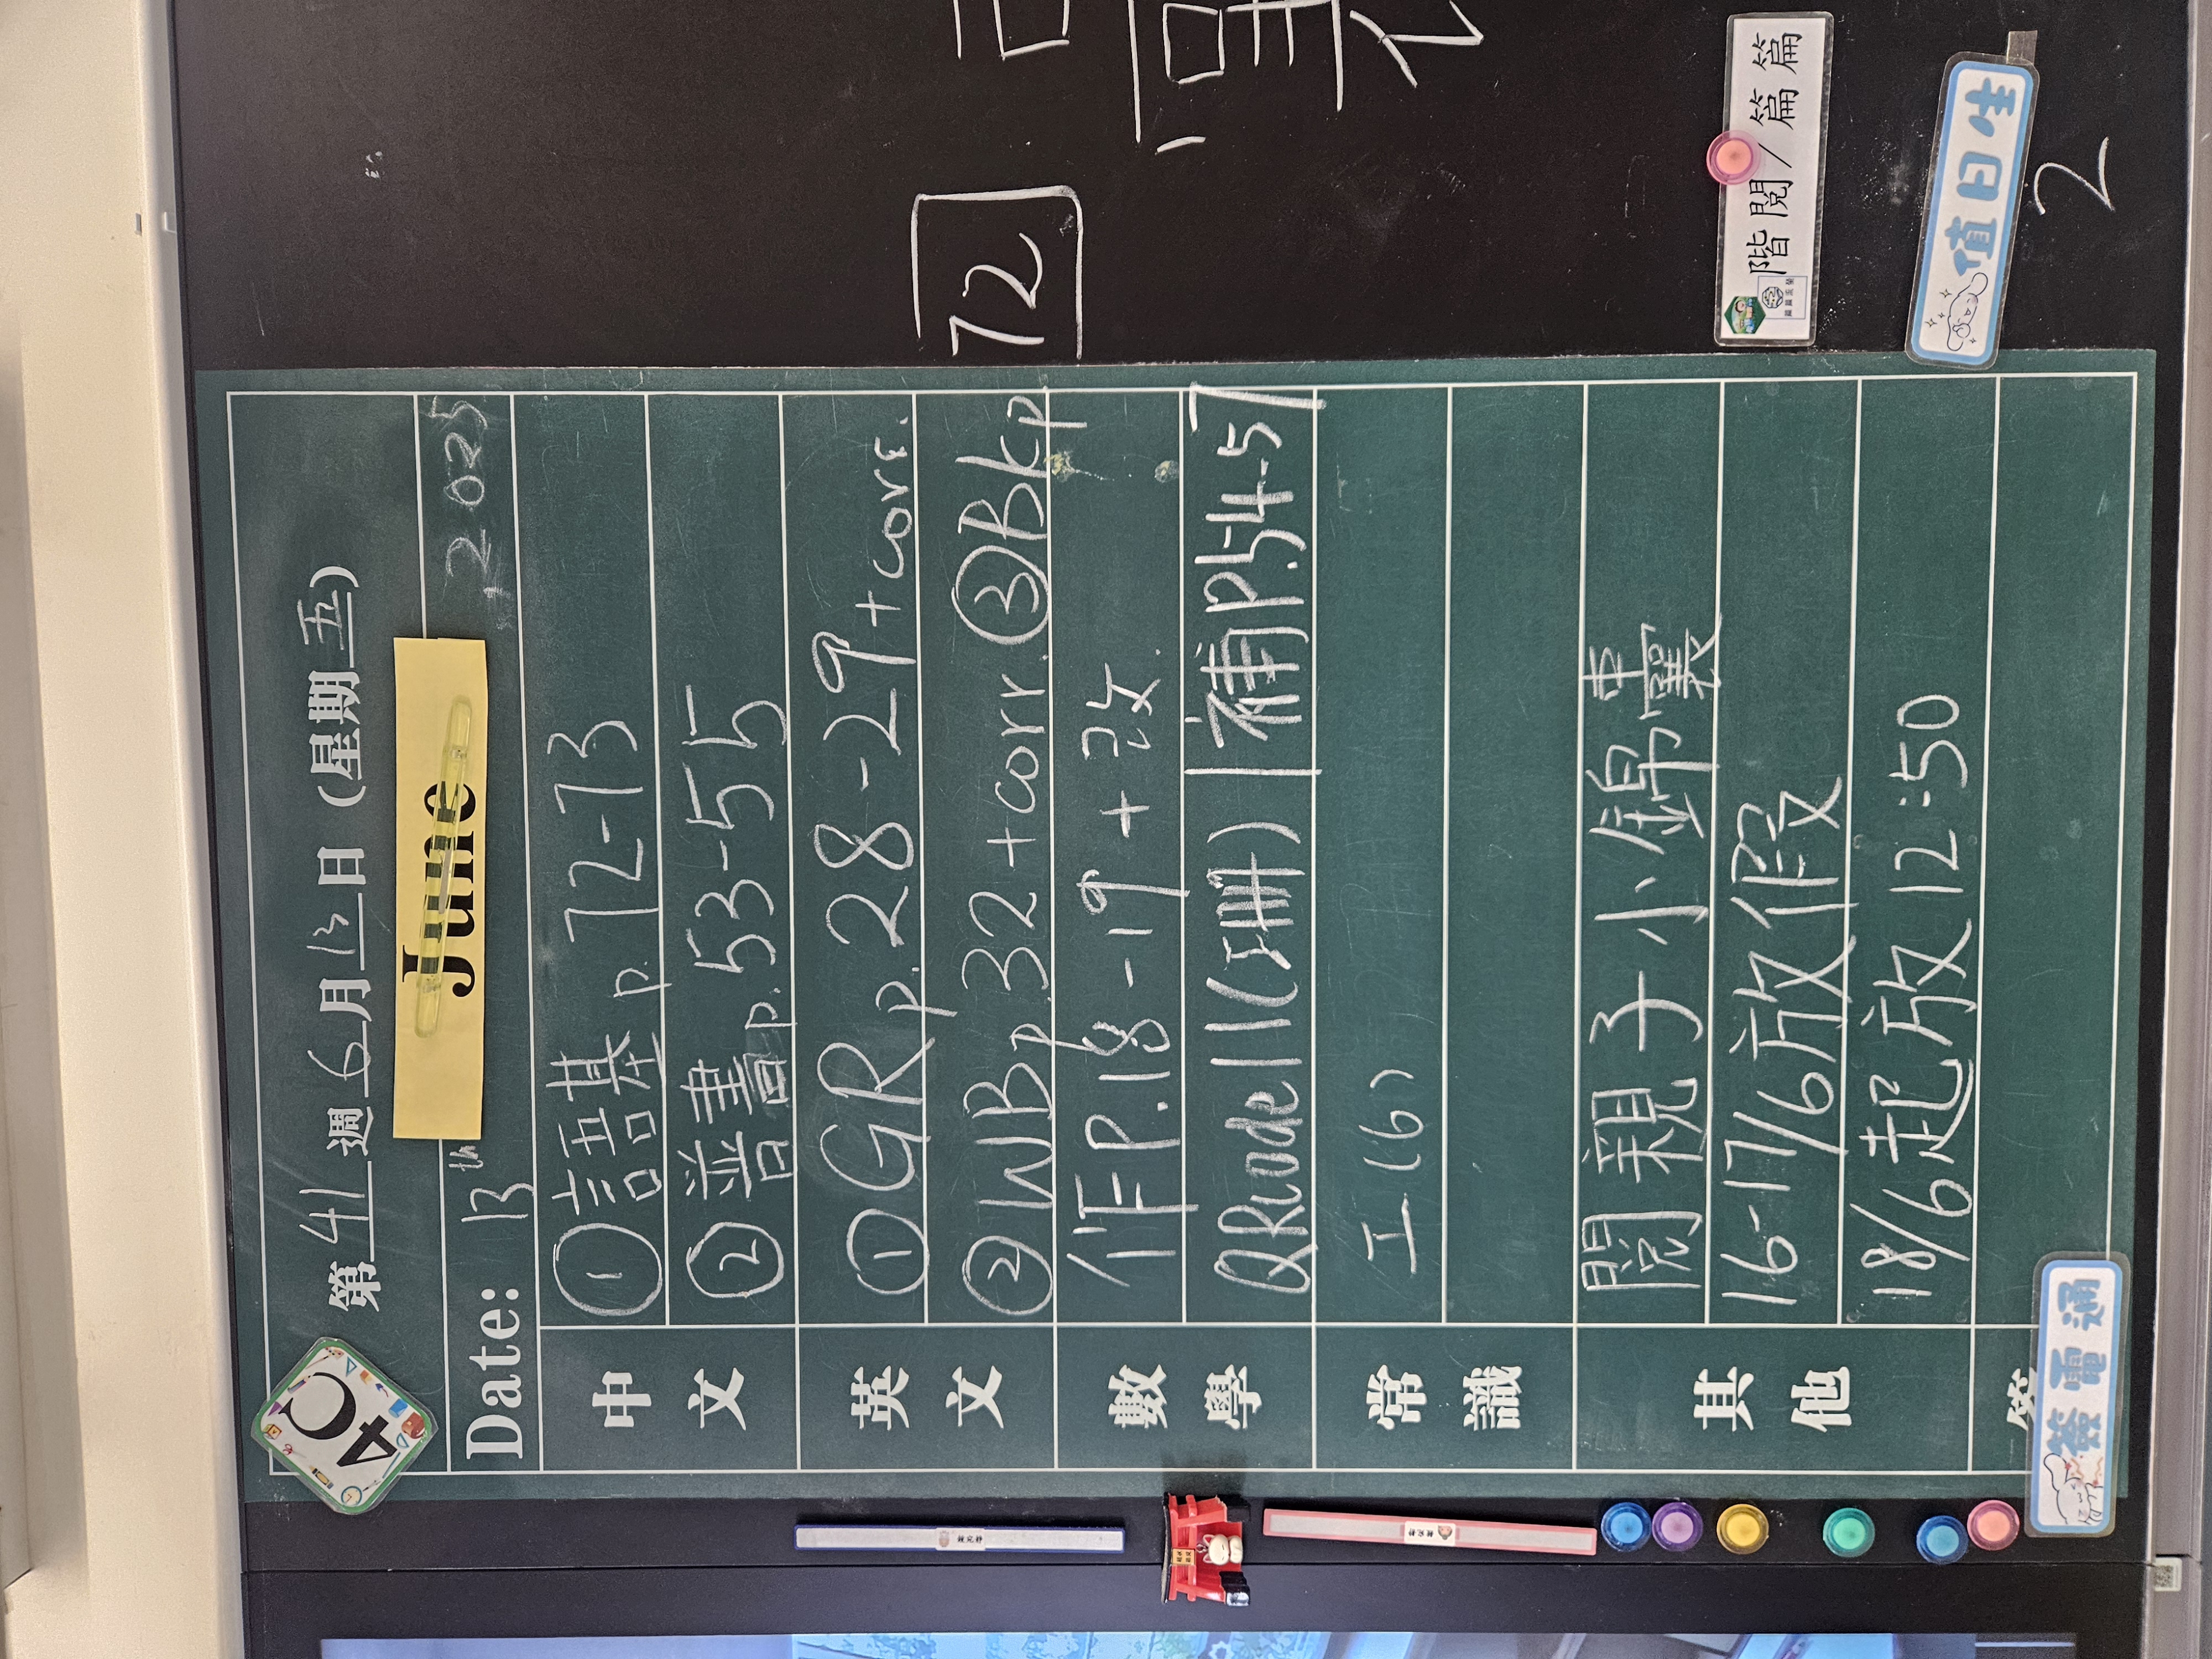 4C
第 41 週 6 月 13 日 (星期 五)
Date: 13th June 2025
中文
① 語基 p. 72-73
② 普書 p. 53-55
英文
① GR p. 28-29 + corr.
② WB p. 32 + corr. ③ BK p
數學
作 P.18-19 + 改.
QRcode 11 (工冊) 補 P.54-57
常識
工(6)
其他
閱親子小錦囊
16-17/6 放假
18/6 起放 12:50
簽電通
72
階閱/篇篇
值日生
2